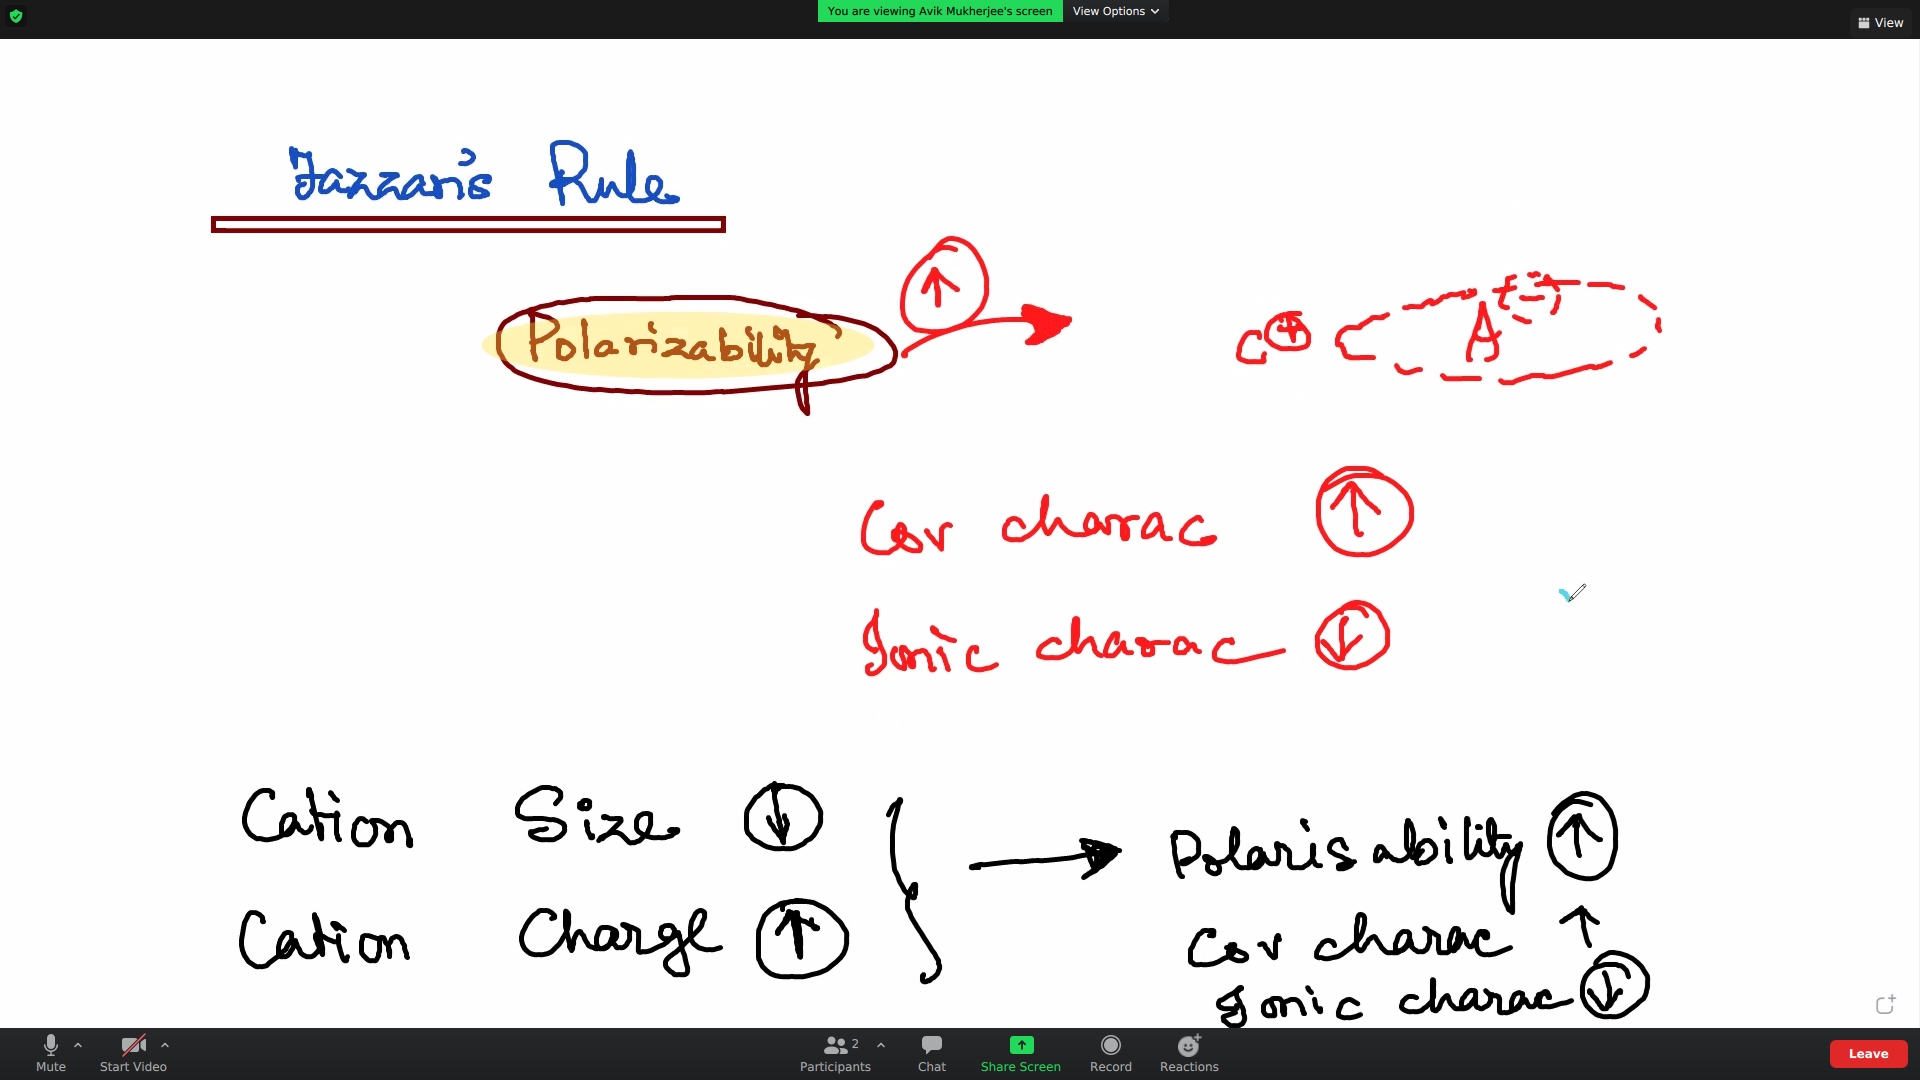 You are viewing Avik Mukherjee's screen View Options
View
Fazzan's Rule
Polarizability ↑
C⊕ A⊖
Cov charac ↑
Ionic charac ↓
Cation Size ↓
Cation Charge ↑
Polarisability ↑
Cov charac ↑
Ionic charac ↓
Mute Start Video Participants 2 Chat Share Screen Record Reactions Leave